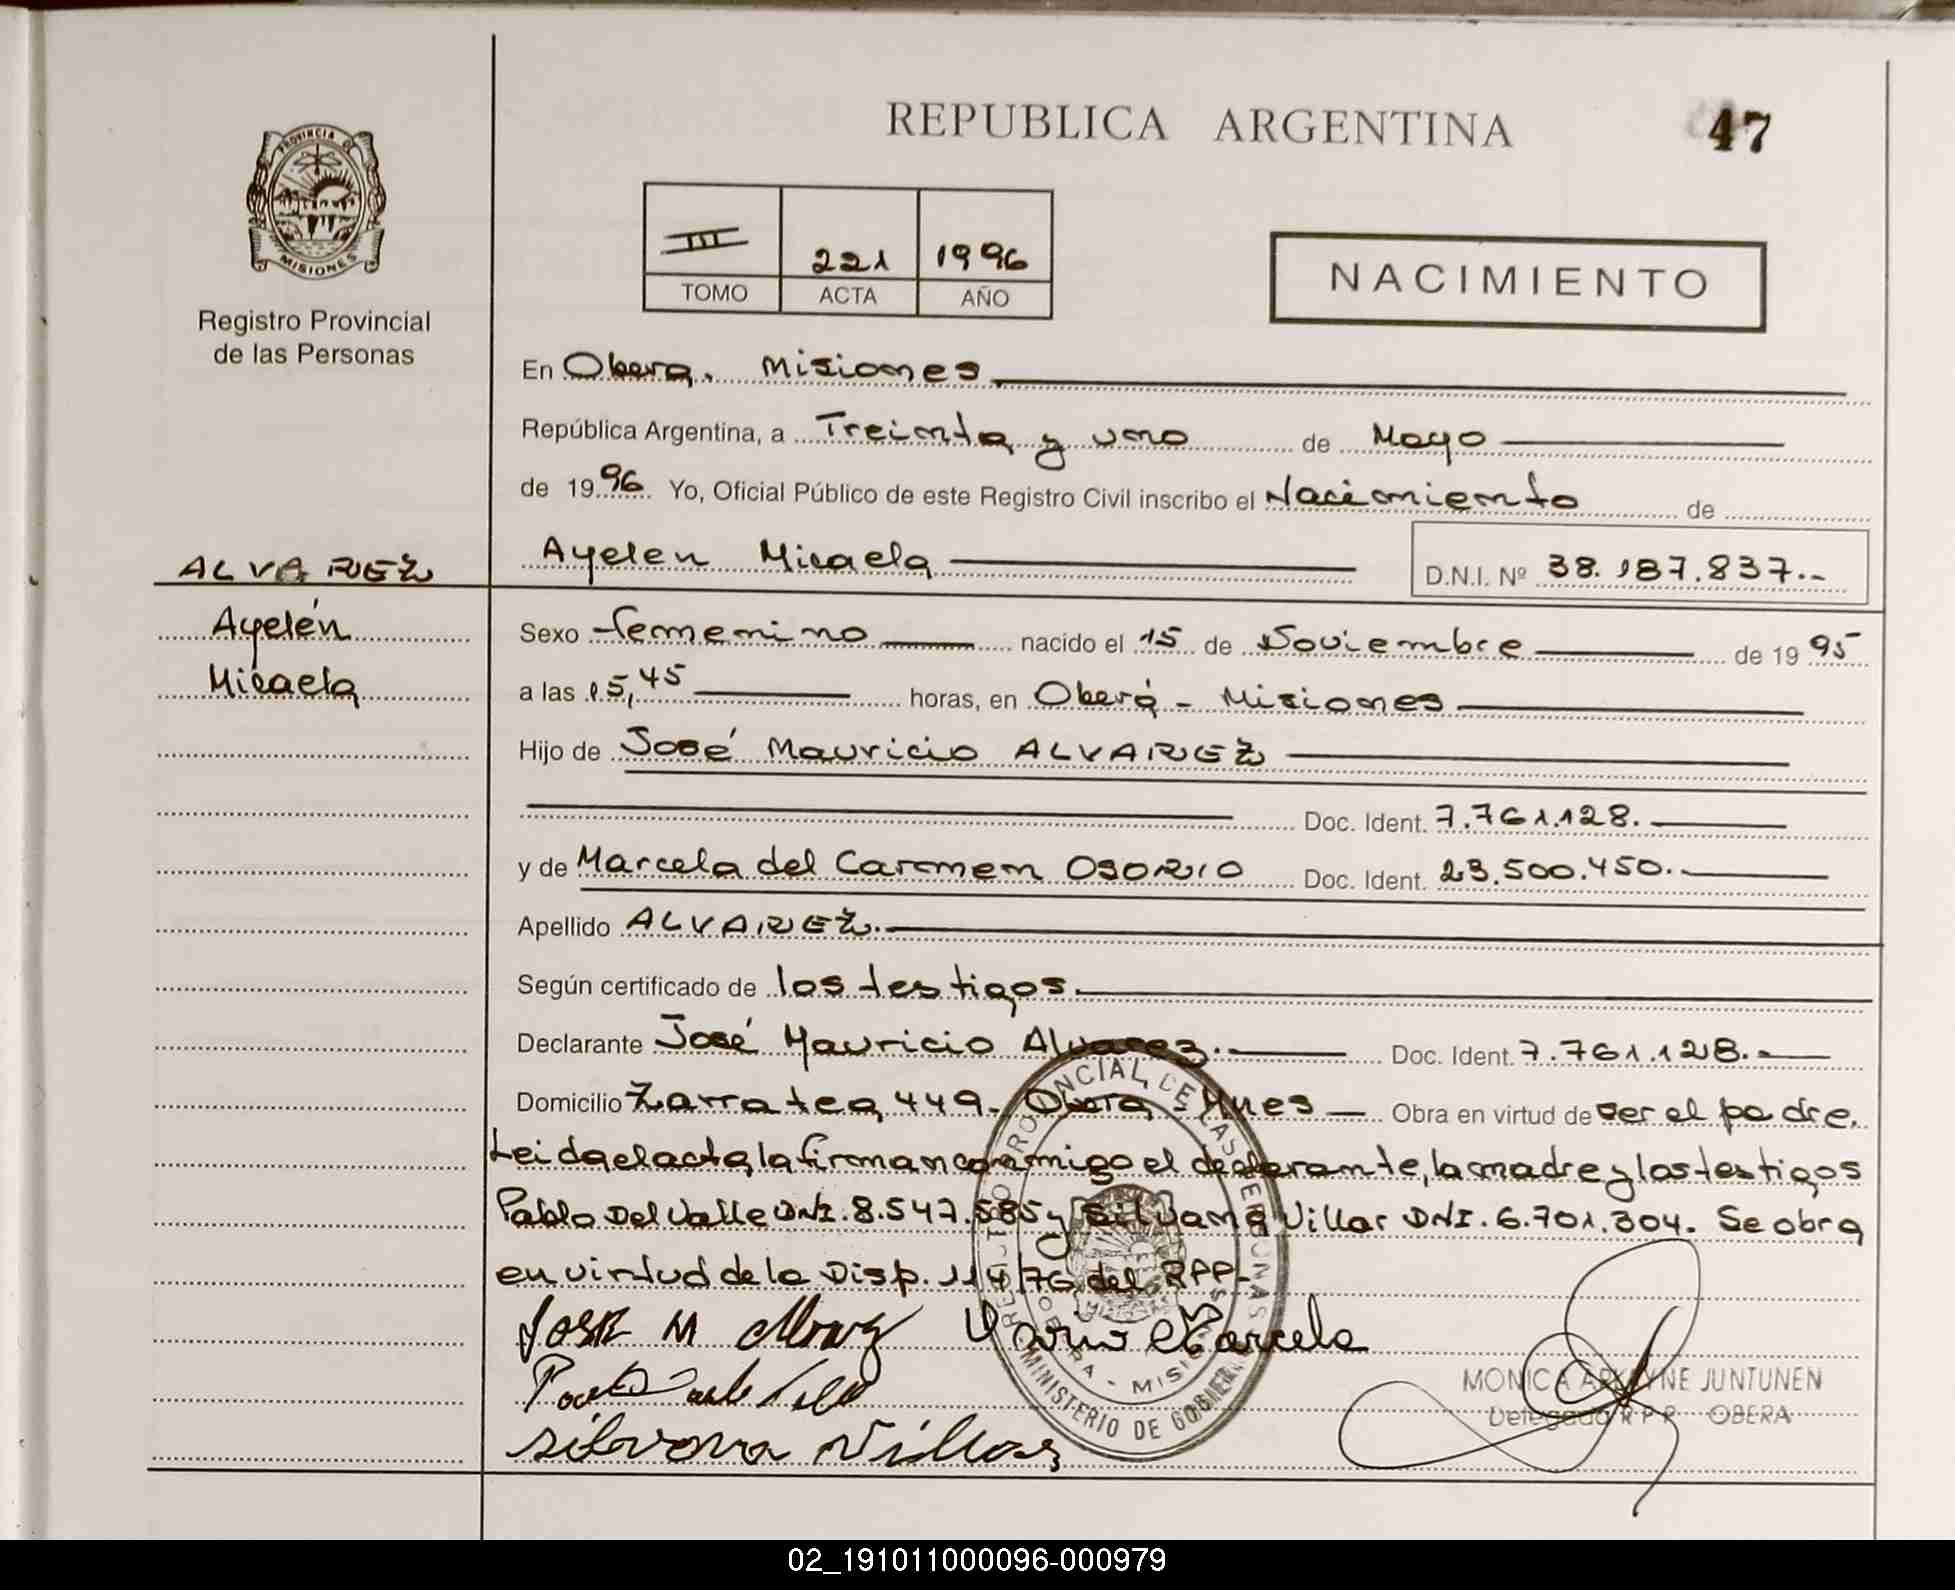 REPUBLICA ARGENTINA
47
PROVINCIA DE
MISIONES
Registro Provincial
de las Personas
III 221 1996
TOMO ACTA AÑO
NACIMIENTO
En Obera. Misiones.
República Argentina, a Treinta y uno de Mayo
de 1996 Yo, Oficial Público de este Registro Civil inscribo el Nacimiento de
Ayelen Micaela D.N.I. Nº 38.187.837.-
ALVAREZ
Ayelén
Micaela
Sexo femenino nacido el 15 de Noviembre de 1995
a las 15,45 horas, en Oberá - Misiones
Hijo de José Mauricio ALVAREZ
Doc. Ident. 7.761.128.
y de Marcela del Carmen OSORIO Doc. Ident. 23.500.450.
Apellido ALVAREZ.
Según certificado de los testigos.
Declarante José Mauricio Alvarez. Doc. Ident. 7.761.128.
Domicilio Zarratea 449. Obera - Mnes Obra en virtud de ser el padre.
Leida el acta, la firman conmigo el declarante, la madre y los testigos
Pablo Del Valle DNI. 8.547.585 y Silvana Villar DNI. 6.701.304. Se obra
en virtud de la Disp. 114/76 del RPP-
José M Marcela
Silvana Villar
REGISTRO PROVINCIAL DE LAS PERSONAS
OBERA - MISIONES
MINISTERIO DE GOBIERNO
MONICA JUNTUNEN
Delegada R P P OBERA
02_191011000096-000979